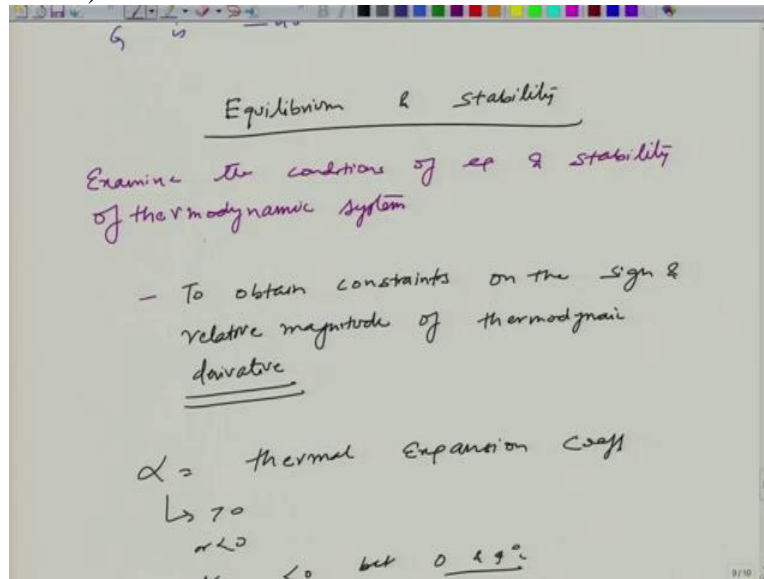 G is
Equilibrium & stability
Examine the conditions of eq & stability
of thermodynamic system
- To obtain constraints on the sign &
relative magnitude of thermodynaic
derivative
α = thermal Expansion Coeff
↳ >0
or <0
<0 bet 0 & 4°c
9/10